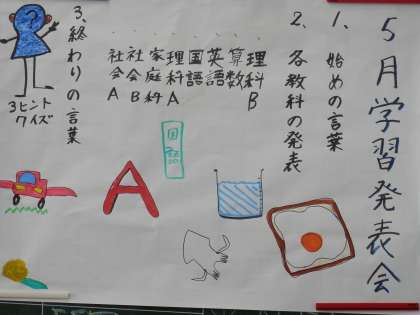 5月学習発表会
1、始めの言葉
2、各教科の発表
理科B
算数
英語
国語
理科A
家庭科
社会B
社会A
3、終わりの言葉
?
3ヒント
クイズ
国語
A